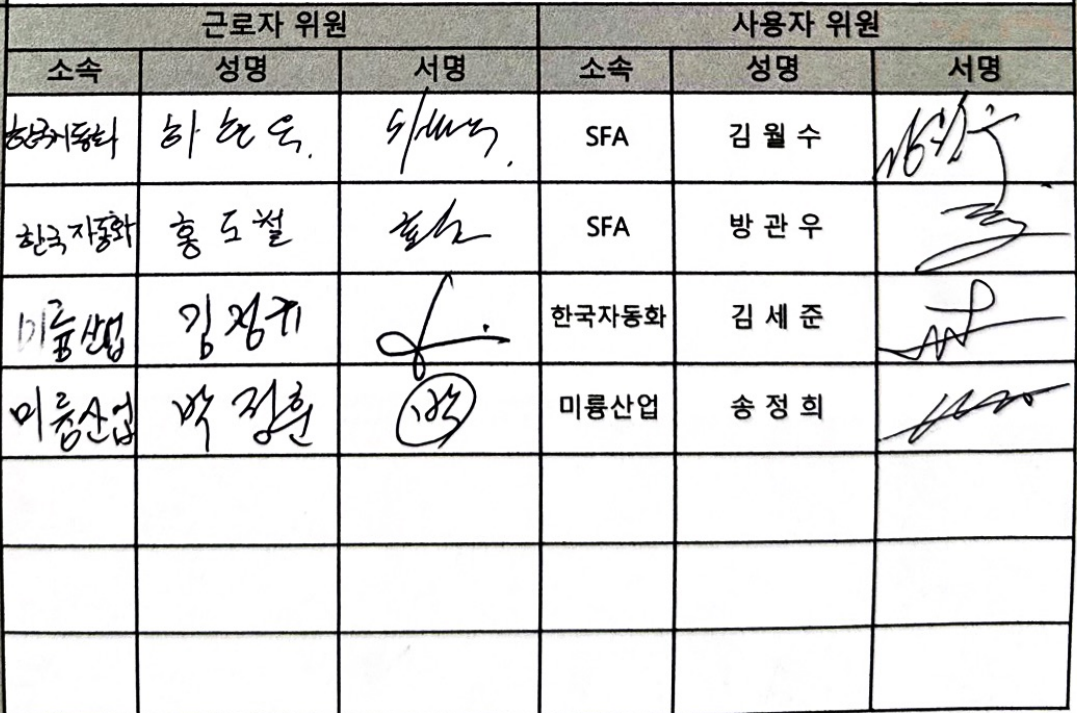 근로자 위원 사용자 위원
소속 성명 서명 소속 성명 서명
한국자동화 하현욱. SFA 김월수
한국자동화 홍도철 SFA 방관우
미륭산업 김정귀 한국자동화 김세준
미륭산업 박정훈 박 미륭산업 송정희